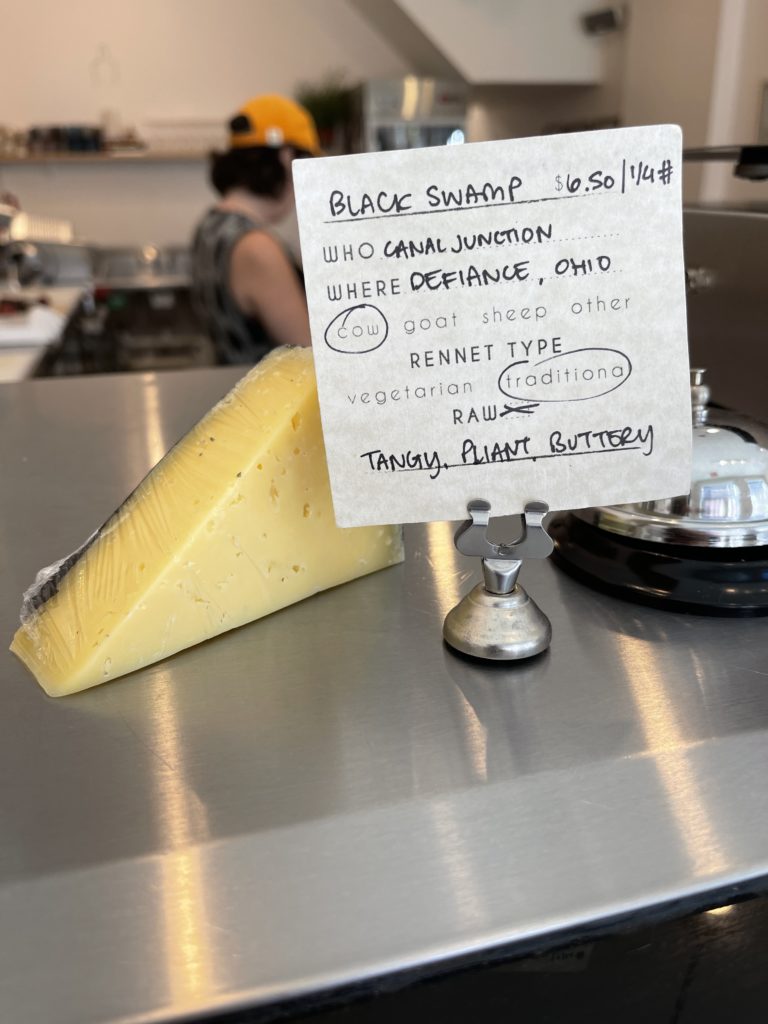 BLACK SWAMP $6.50/1/4#
WHO CANAL JUNCTION
WHERE DEFIANCE, OHIO
cow goat sheep other
RENNET TYPE
vegetarian traditional
RAW X
TANGY, PLIANT, BUTTERY